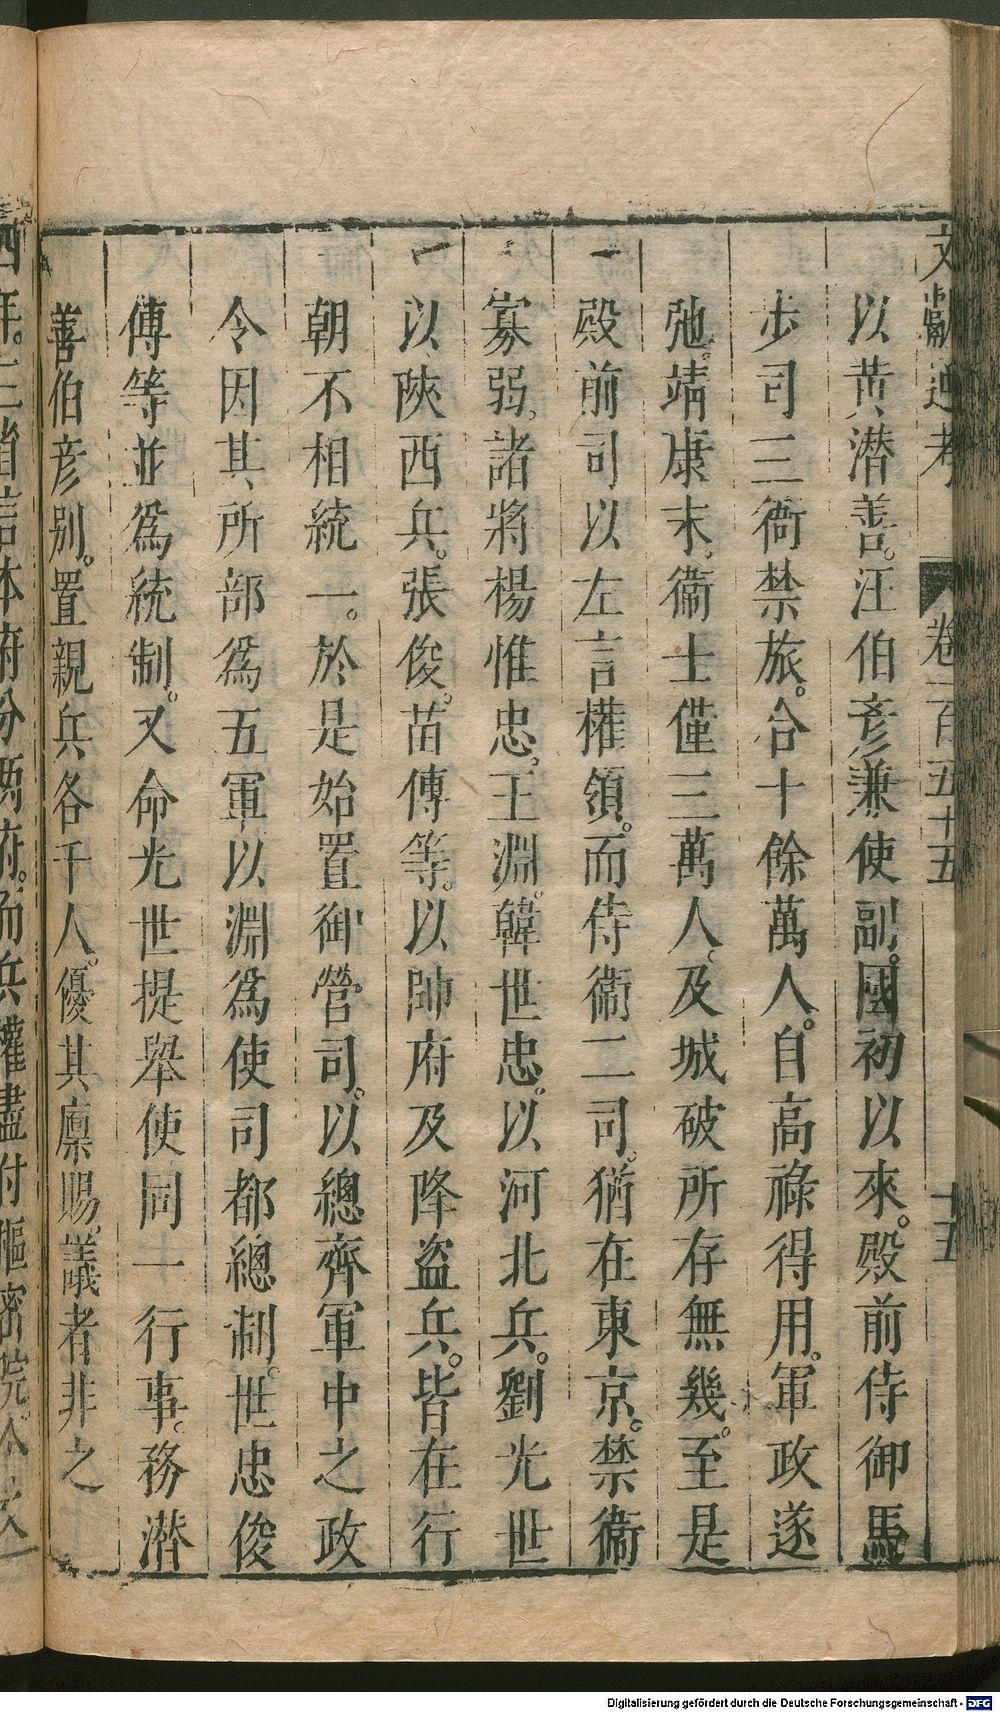 文獻通考 卷一百五十五 十五
以黃潛善。汪伯彥兼使副。國初以來。殿前侍御馬
步司三衙禁旅。合十餘萬人。自高祿得用。軍政遂
弛。靖康末。衞士僅三萬人。及城破所存無幾。至是
殿前司以左言權領。而侍衞二司。猶在東京。禁衞
寡弱。諸將楊惟忠。王淵。韓世忠。以河北兵。劉光世
以陜西兵。張俊。苗傅等。以帥府及降盜兵。皆在行
朝不相統一。於是始置御營司。以總齊軍中之政
令因其所部爲五軍以淵爲使司都總制。世忠俊
傅等並爲統制。又命光世提舉使同一行事。務潛
善伯彥别。置親兵各千人。優其廪賜。議者非之
Digitalisierung gefördert durch die Deutsche Forschungsgemeinschaft - DFG